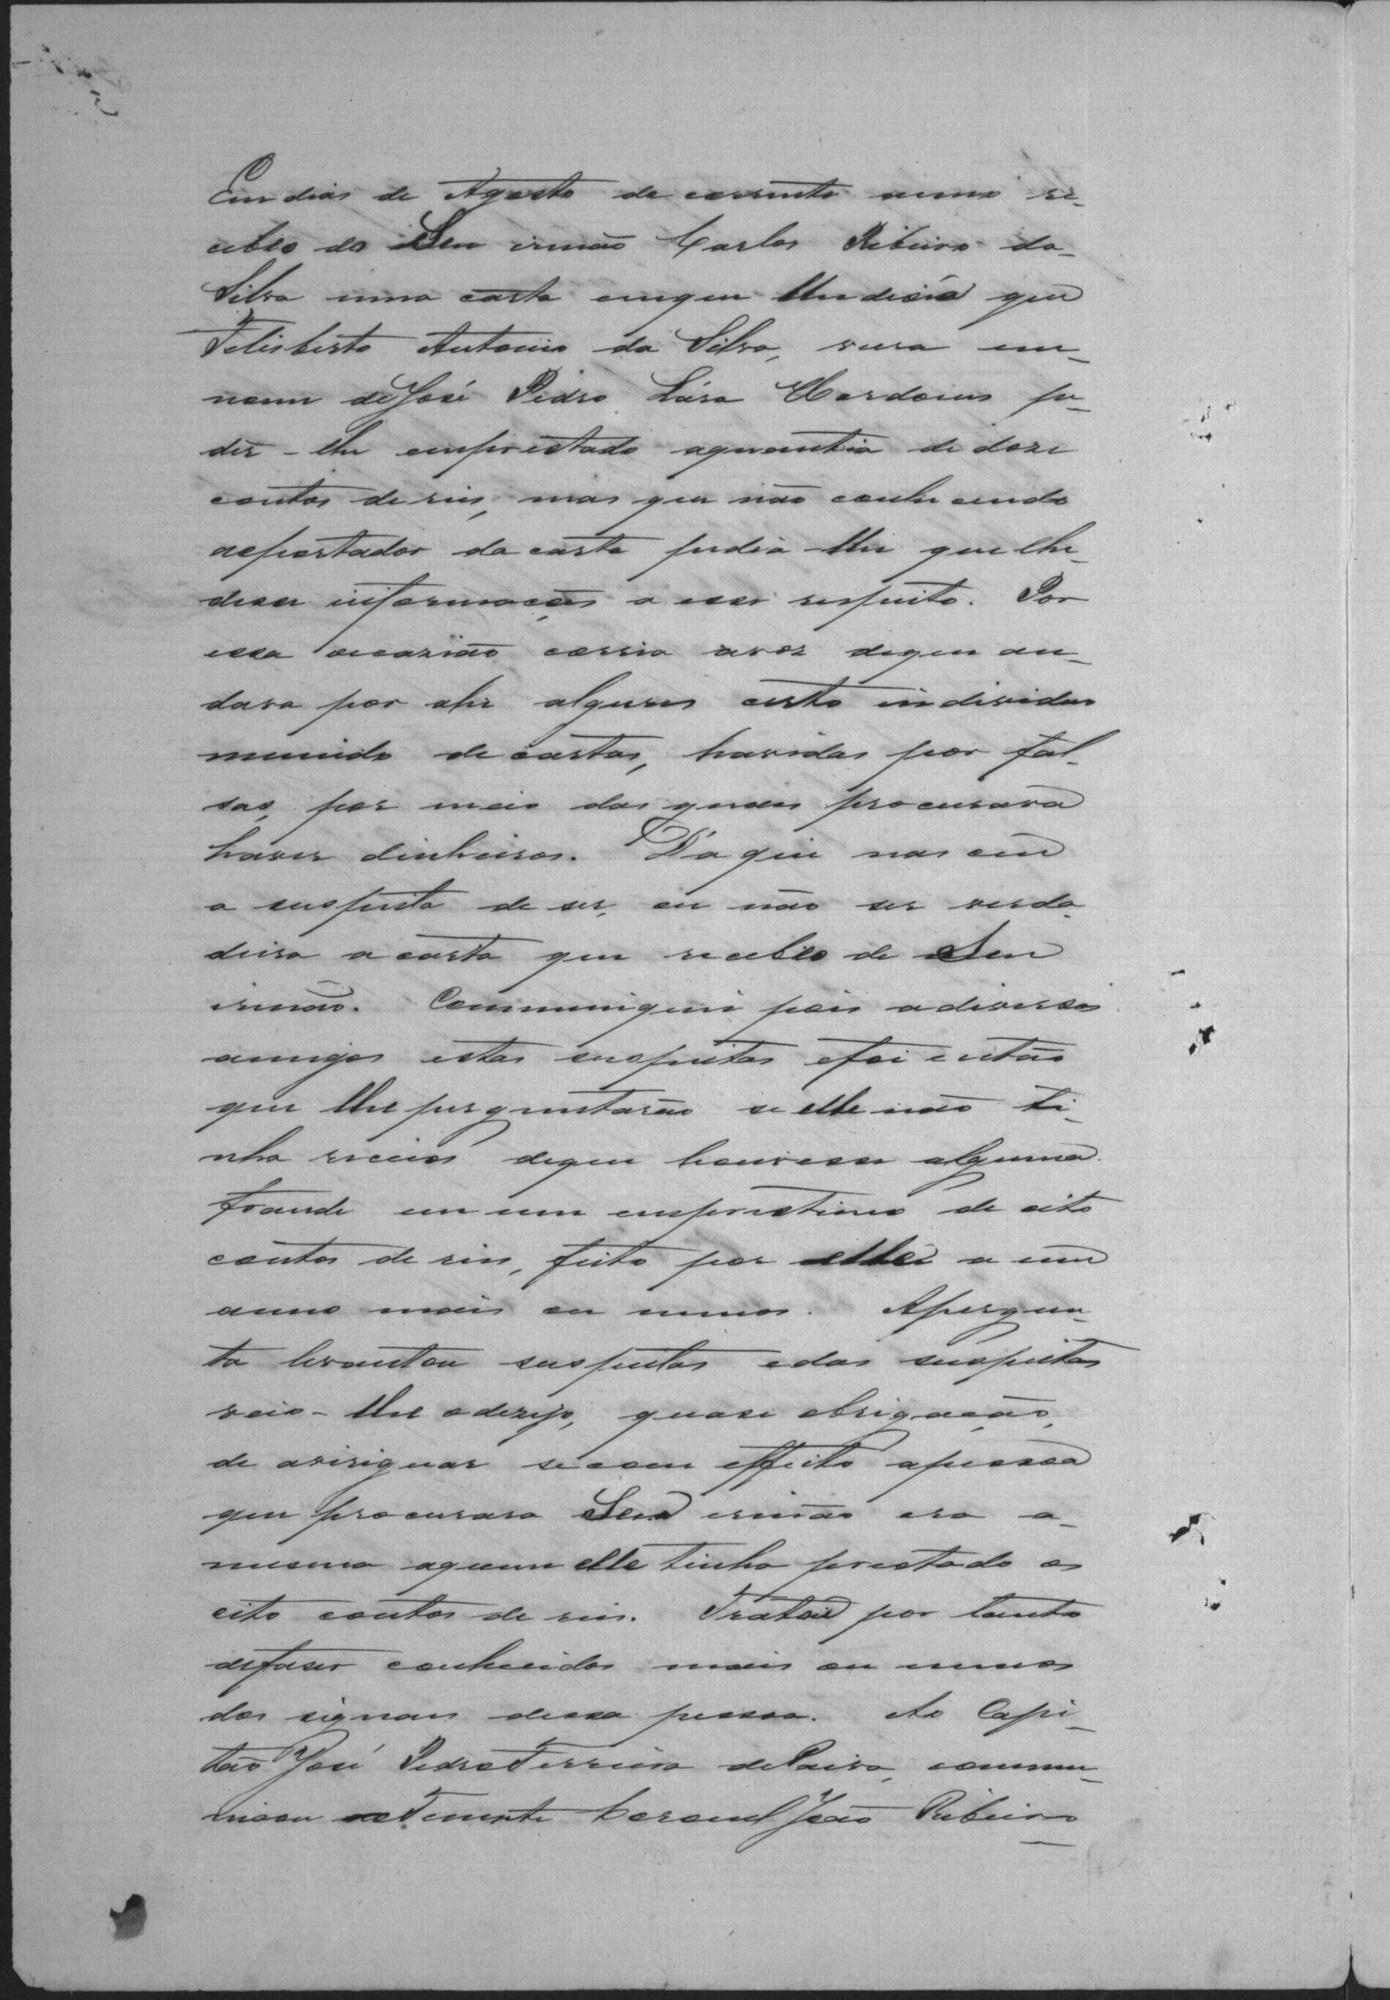 Em dias de Agosto do corrente anno re-
cebeo do Seu irmão Carlos Ribeiro da
Silva uma carta emque lhe disia que
Felisberto Antonio da Silva, viera em
nome de José Pedro Lára pe-
dir-lhe emprestado aquantia de dose
contos de reis, mas que não conhecendo
aoportador da carta pedia-lhe que lhe
desse informações a esse respeito. Por
essa occazião corria avoz dequem an-
dava por ahi algures certo individuo
munido de cartas, havidas por fal-
sas, por meio das quaes procurava
haver dinheiros. D'aqui nasceu
a suspeita de ser, ou não ser verda-
deira a carta que recebeo de Seu
irmão. Communiquei pois adiversos
amigos estas suspeitas efoi então
que lhe perguntarão se elle não ti-
nha receios dequem houvesse alguma
fraude em um emprestimo de oito
contos de reis, feito por elle a um
anno mais ou menos. Apergun-
ta levantou suspeitas edas suspeitas
veio-lhe odezejo, quase obrigação,
de aviriguar secom effeito apessoa
que procurara Seu irmão era a
mesma aquem elle tinha prestado os
oito contos de reis. Tratou por tanto
defaser conhecidos mais ou menos
dos signaes dessa pessoa. Ao Capi-
tão José Pedro Ferreira de Paiva, commu-
nicou ao Tenente Coronel João Ribeiro